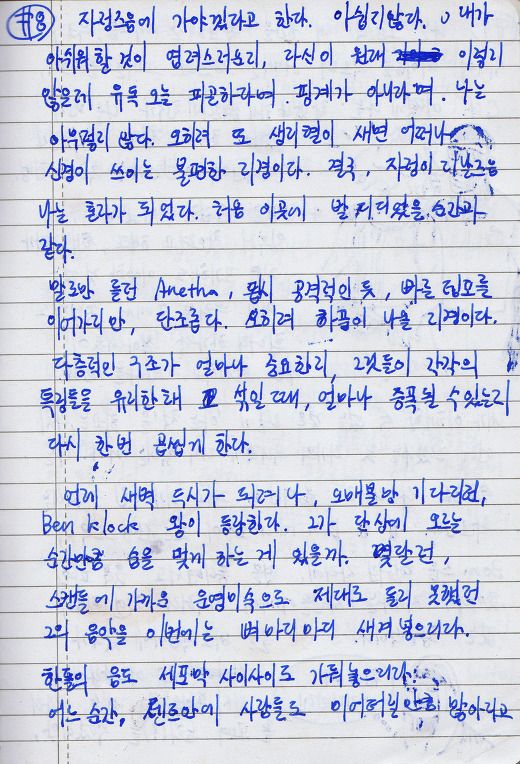 #8 자정즈음에 가야겠다고 한다. 아쉽지않다. 내가
아쉬워할 것이 염려스러운지, 자신이 원래 이렇지
않은데 유독 오늘 피곤하다며. 핑계가 아니라며. 나는
아무렇지 않다. 오히려 또 생리혈이 새면 어쩌나
신경이 쓰이는 불편한 지경이다. 결국, 자정이 다 즈음
나는 혼자가 되었다. 처음 이곳에 발 디디었을 순간과
같다.
말로만 듣던 Anetha, 몹시 공격적인 듯, 빠른 템포를
이어가지만, 단조롭다. 오히려 하품이 나올 지경이다.
다층적인 구조가 얼마나 중요한지, 그것들이 각각의
특징들을 유지한채 섞일 때, 얼마나 증폭될 수 있는지
다시 한번 곱씹게 한다.
언제 새벽 두시가 되려나, 오매불망 기다리던,
Ben Klock 왕이 등장한다. 그가 단상에 오르는
순간만큼 숨을 멎게 하는 게 있을까. 몇달 전,
스캔들에 가까운 운영미숙으로 제대로 듣지 못했던
그의 음악을 이번에는 뼈마디마디 새겨넣으리라.
한톨의 음도 세포막 사이사이로 가둬놓으리라.
어느 순간, 텐트안에 사람들로 미어터질 만큼 많아지고